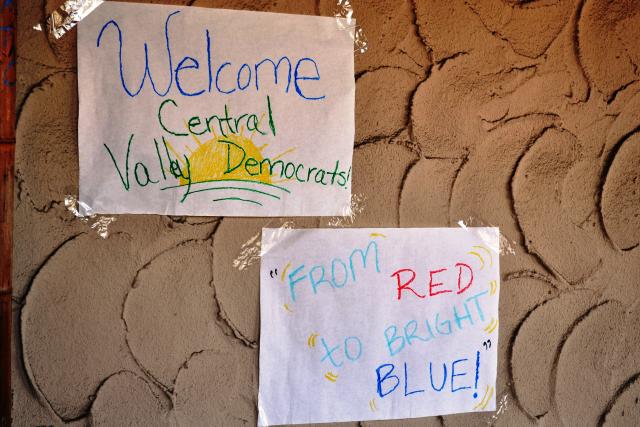 Welcome
Central
Valley Democrats!
"FROM
RED
to BRIGHT
BLUE!"